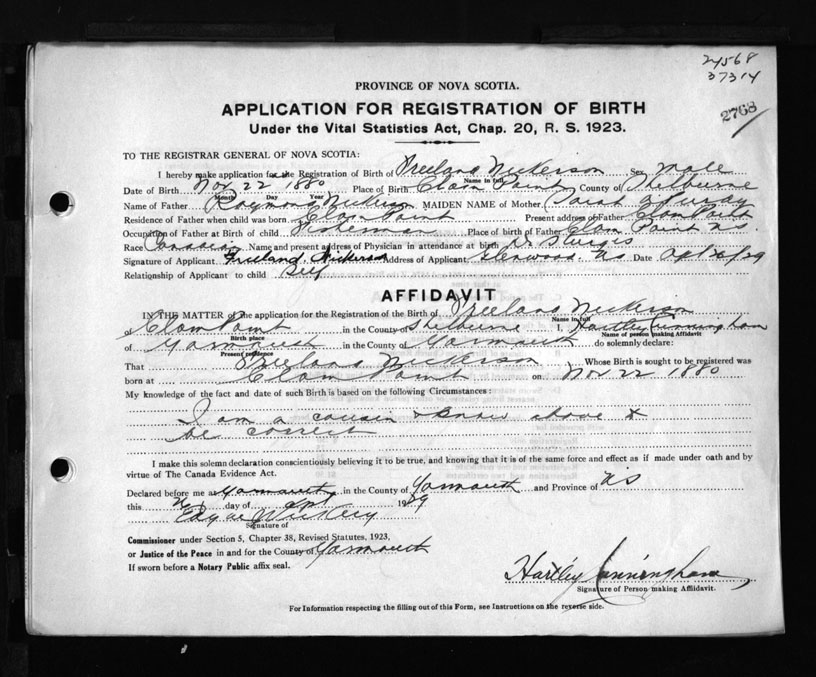 24568
37314
2768
PROVINCE OF NOVA SCOTIA.
APPLICATION FOR REGISTRATION OF BIRTH
Under the Vital Statistics Act, Chap. 20, R. S. 1923.
TO THE REGISTRAR GENERAL OF NOVA SCOTIA:
I hereby make application for the Registration of Birth of Freeland Nickerson Sex male
Name in full
Date of Birth Nov 22 1880 Place of Birth Clam Point County of Shelburne
Month Day Year
Name of Father Nickerson MAIDEN NAME of Mother Sarah
Residence of Father when child was born Clam Point Present address of Father Clam Point
Occupation of Father at Birth of child Fisherman Place of birth of Father Clam Point N.S.
Race Canadian Name and present address of Physician in attendance at birth Dr Sturgis
Signature of Applicant Freeland Nickerson Address of Applicant Glenwood N.S Date Apl 26/29
Relationship of Applicant to child Self
AFFIDAVIT
IN THE MATTER of the application for the Registration of the Birth of Freeland Nickerson
Name in full
of Clam Point in the County of Shelburne I, Hartley Cunningham
Birth place Name of person making Affidavit
of Yarmouth in the County of Yarmouth do solemnly declare:
Present residence
That Freeland Nickerson Whose Birth is sought to be registered was
born at Clam Point on Nov 22 1880
My knowledge of the fact and date of such Birth is based on the following Circumstances:
I am a cousin & know above to
be correct
I make this solemn declaration conscientiously believing it to be true, and knowing that it is of the same force and effect as if made under oath and by
virtue of The Canada Evidence Act.
Declared before me at Yarmouth in the County of Yarmouth and Province of N S
this 26 day of Apl 1929
Edgar
Signature of
Commissioner under Section 5, Chapter 38, Revised Statutes, 1923,
or Justice of the Peace in and for the County Yarmouth
If sworn before a Notary Public affix seal.
Hartley Cunningham
Signature of Person making Affidavit.
For Information respecting the filling out of this Form, see Instructions on the reverse side.